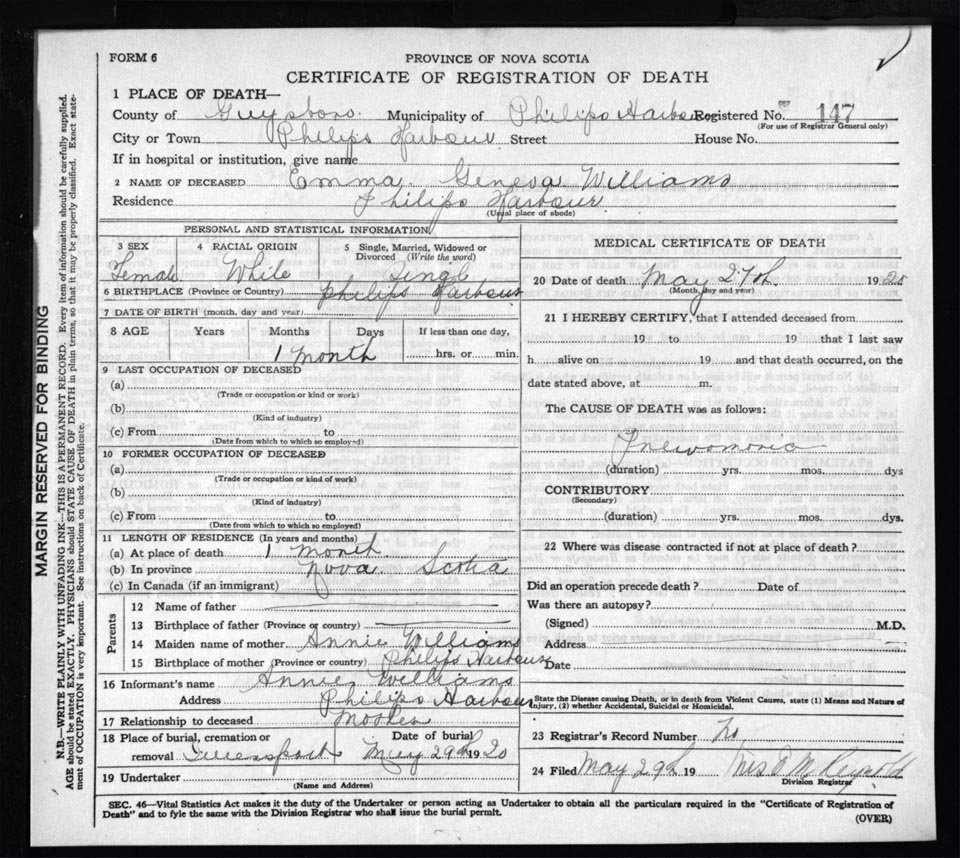 FORM 6
PROVINCE OF NOVA SCOTIA
CERTIFICATE OF REGISTRATION OF DEATH
1 PLACE OF DEATH—
County of Guysboro. Municipality of Philips Harbour Registered No. 147
(For use of Registrar General only)
City or Town Philips Harbour Street House No.
If in hospital or institution, give name
2 NAME OF DECEASED Emma Geneva Williams
Residence Philips Harbour
(Usual place of abode)
PERSONAL AND STATISTICAL INFORMATION
3 SEX 4 RACIAL ORIGIN 5 Single, Married, Widowed or Divorced (Write the word)
Female White Single
6 BIRTHPLACE (Province or Country) Philips Harbour
7 DATE OF BIRTH (month, day and year)
8 AGE Years Months Days If less than one day,
1 Month hrs. or min.
9 LAST OCCUPATION OF DECEASED
(a)
(Trade or occupation or kind or work)
(b)
(Kind of industry)
(c) From to
(Date from which to which so employed)
10 FORMER OCCUPATION OF DECEASED
(a)
(Trade or occupation or kind of work)
(b)
(Kind of industry)
(c) From to
(Date from which to which so employed)
11 LENGTH OF RESIDENCE (In years and months)
(a) At place of death 1 month
(b) In province Nova Scotia
(c) In Canada (if an immigrant)
Parents
12 Name of father
13 Birthplace of father (Province or country)
14 Maiden name of mother Annie Williams
15 Birthplace of mother (Province or country) Philips Harbour
16 Informant's name Annie Williams
Address Philips Harbour
17 Relationship to deceased Mother
18 Place of burial, cremation or Date of burial
removal Queensport May 29th 1920
19 Undertaker
(Name and Address)
MEDICAL CERTIFICATE OF DEATH
20 Date of death May 27th. 1920
(Month, day and year)
21 I HEREBY CERTIFY, that I attended deceased from
19 to 19 that I last saw
h alive on 19 and that death occurred, on the
date stated above, at m.
The CAUSE OF DEATH was as follows:
Pnewmonia
(duration) yrs. mos. dys
CONTRIBUTORY
(Secondary)
(duration) yrs. mos. dys.
22 Where was disease contracted if not at place of death?
Did an operation precede death? Date of
Was there an autopsy?
(Signed) M.D.
Address
Date
State the Disease causing Death, or in death from Violent Causes, state (1) Means and Nature of
Injury, (2) whether Accidental, Suicidal or Homicidal.
23 Registrar's Record Number
24 Filed May 29th 19 Mrs
Division Registrar
SEC. 46—Vital Statistics Act makes it the duty of the Undertaker or person acting as Undertaker to obtain all the particulars required in the "Certificate of Registration of
Death" and to fyle the same with the Division Registrar who shall issue the burial permit.
(OVER)
MARGIN RESERVED FOR BINDING
N.B.—WRITE PLAINLY WITH UNFADING INK—THIS IS A PERMANENT RECORD. Every item of information should be carefully supplied.
AGE should be stated EXACTLY. PHYSICIANS should STATE CAUSE OF DEATH in plain terms, so that it may be properly classified. Exact state-
ment of OCCUPATION is very important. See instructions on back of Certificate.